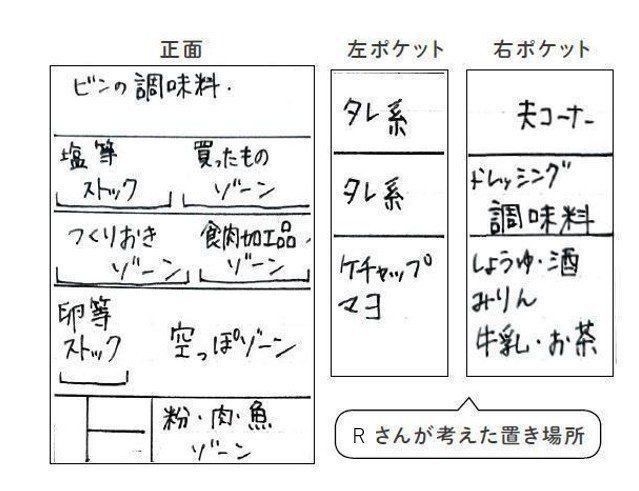 正面
ビンの調味料.
塩等
ストック
買ったもの
ゾーン
つくりおき
ゾーン
食肉加工品.
ゾーン
卵等
ストック
空っぽゾーン
粉・肉・魚
ゾーン
左ポケット
タレ系
タレ系
ケチャップ
マヨ
右ポケット
夫コーナー
ドレッシング
調味料
しょうゆ・酒
みりん
牛乳・お茶
Rさんが考えた置き場所